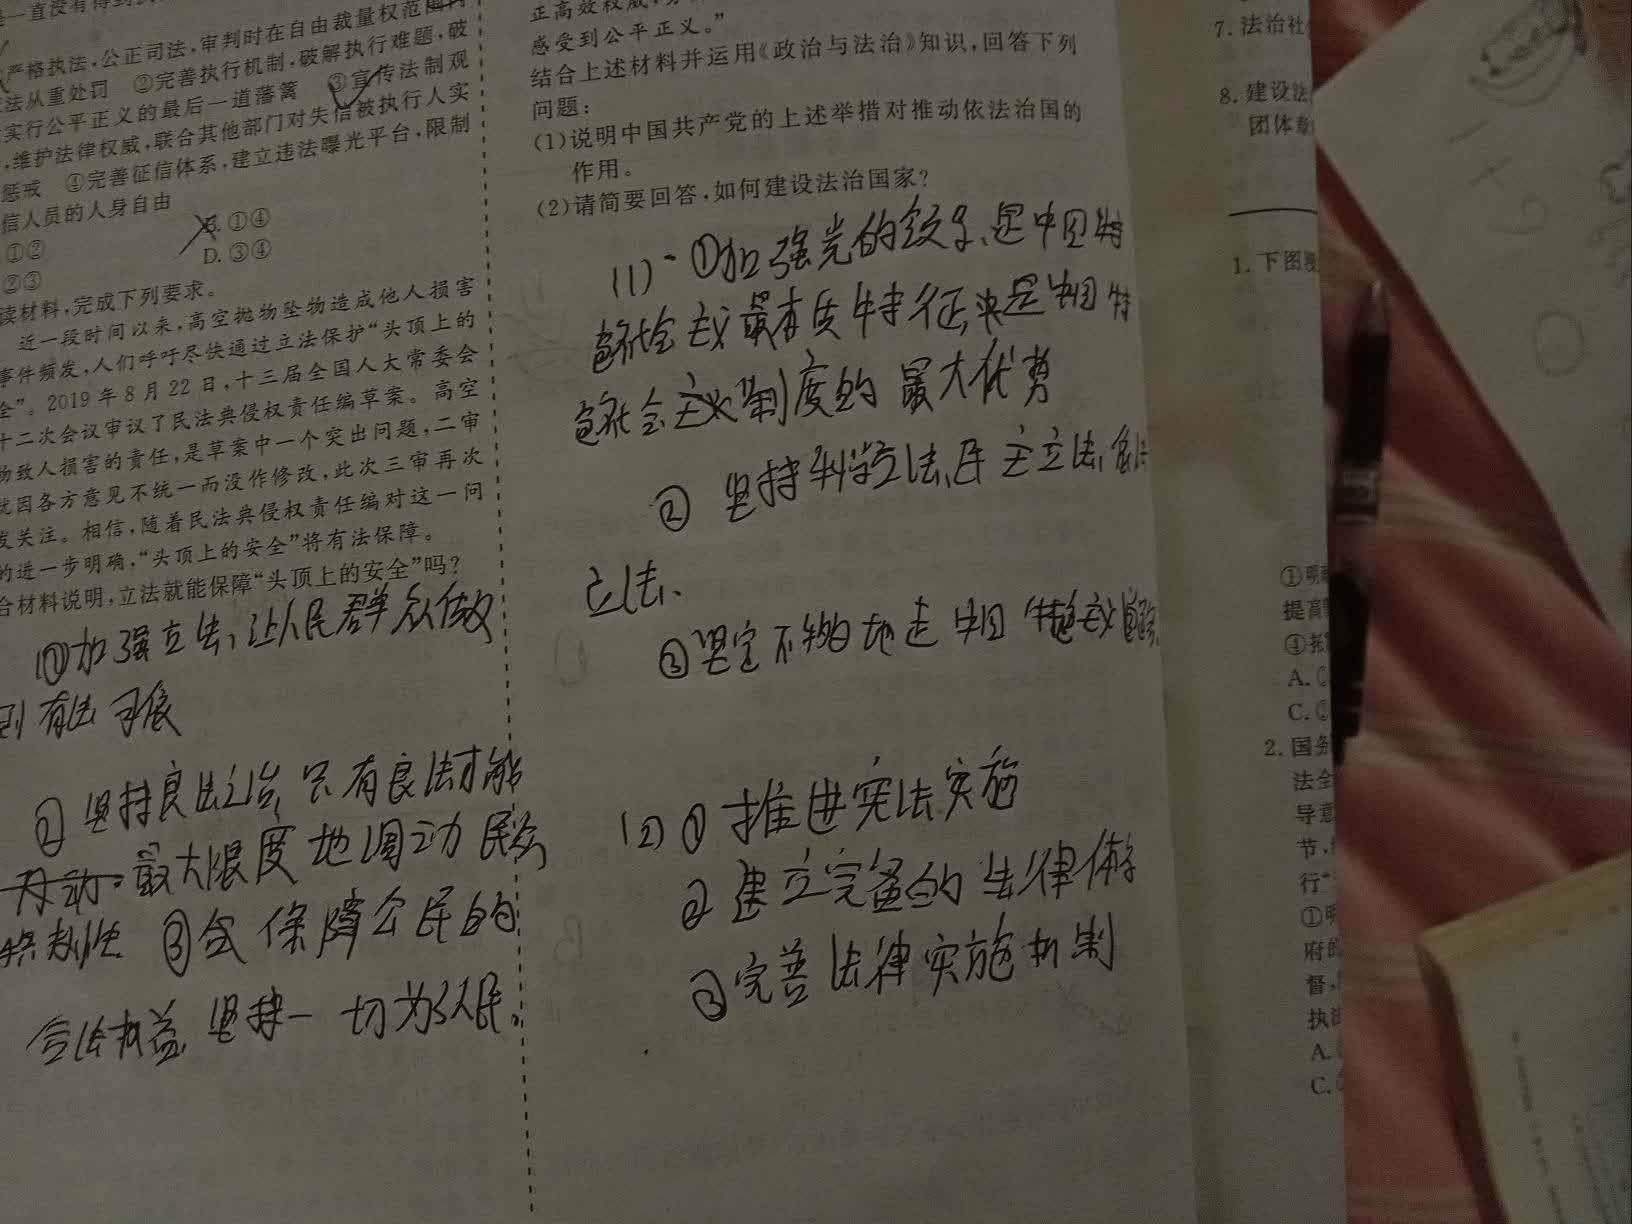 严格执法,公正司法,审判时在自由裁量权范围内
法从重处罚 ②完善执行机制,破解执行难题,破
实行公平正义的最后一道藩篱 ③宣传法制观
,维护法律权威,联合其他部门对失信被执行人实
惩戒 ④完善征信体系,建立违法曝光平台,限制
信人员的人身自由
①② B.①④
②③ D.③④
读材料,完成下列要求。
近一段时间以来,高空抛物坠物造成他人损害
事件频发,人们呼吁尽快通过立法保护“头顶上的
全”。2019年8月22日,十三届全国人大常委会
十二次会议审议了民法典侵权责任编草案。高空
物致人损害的责任,是草案中一个突出问题,二审
就因各方意见不统一而没作修改,此次三审再次
发关注。相信,随着民法典侵权责任编对这一问
的进一步明确,“头顶上的安全”将有法保障。
合材料说明,立法就能保障“头顶上的安全”吗?
①加强立法,让人民群众做
到有法可依
②坚持良法之治,只有良法才能
最大限度地调动民众
③会保障公民的
合法权益,坚持一切为了人民。
正高效权威,
感受到公平正义。”
结合上述材料并运用《政治与法治》知识,回答下列
问题:
(1)说明中国共产党的上述举措对推动依法治国的
作用。
(2)请简要回答,如何建设法治国家?
(1)①加强党的领导、是中国特
色社会主义最本质特征,也是中国特
色社会主义制度的最大优势
②坚持科学立法、民主立法、依法
立法、
③坚定不移地走中国特色社会主义道路
(2)①推进宪法实施
②建立完备的法律体系
③完善法律实施机制
7.法治社
8.建设法
团体章
1.下图
①明
提高
④
A.
C.
2.国务
法全
导意
节,
行“
①明
府的
督,
执法
A.
C.